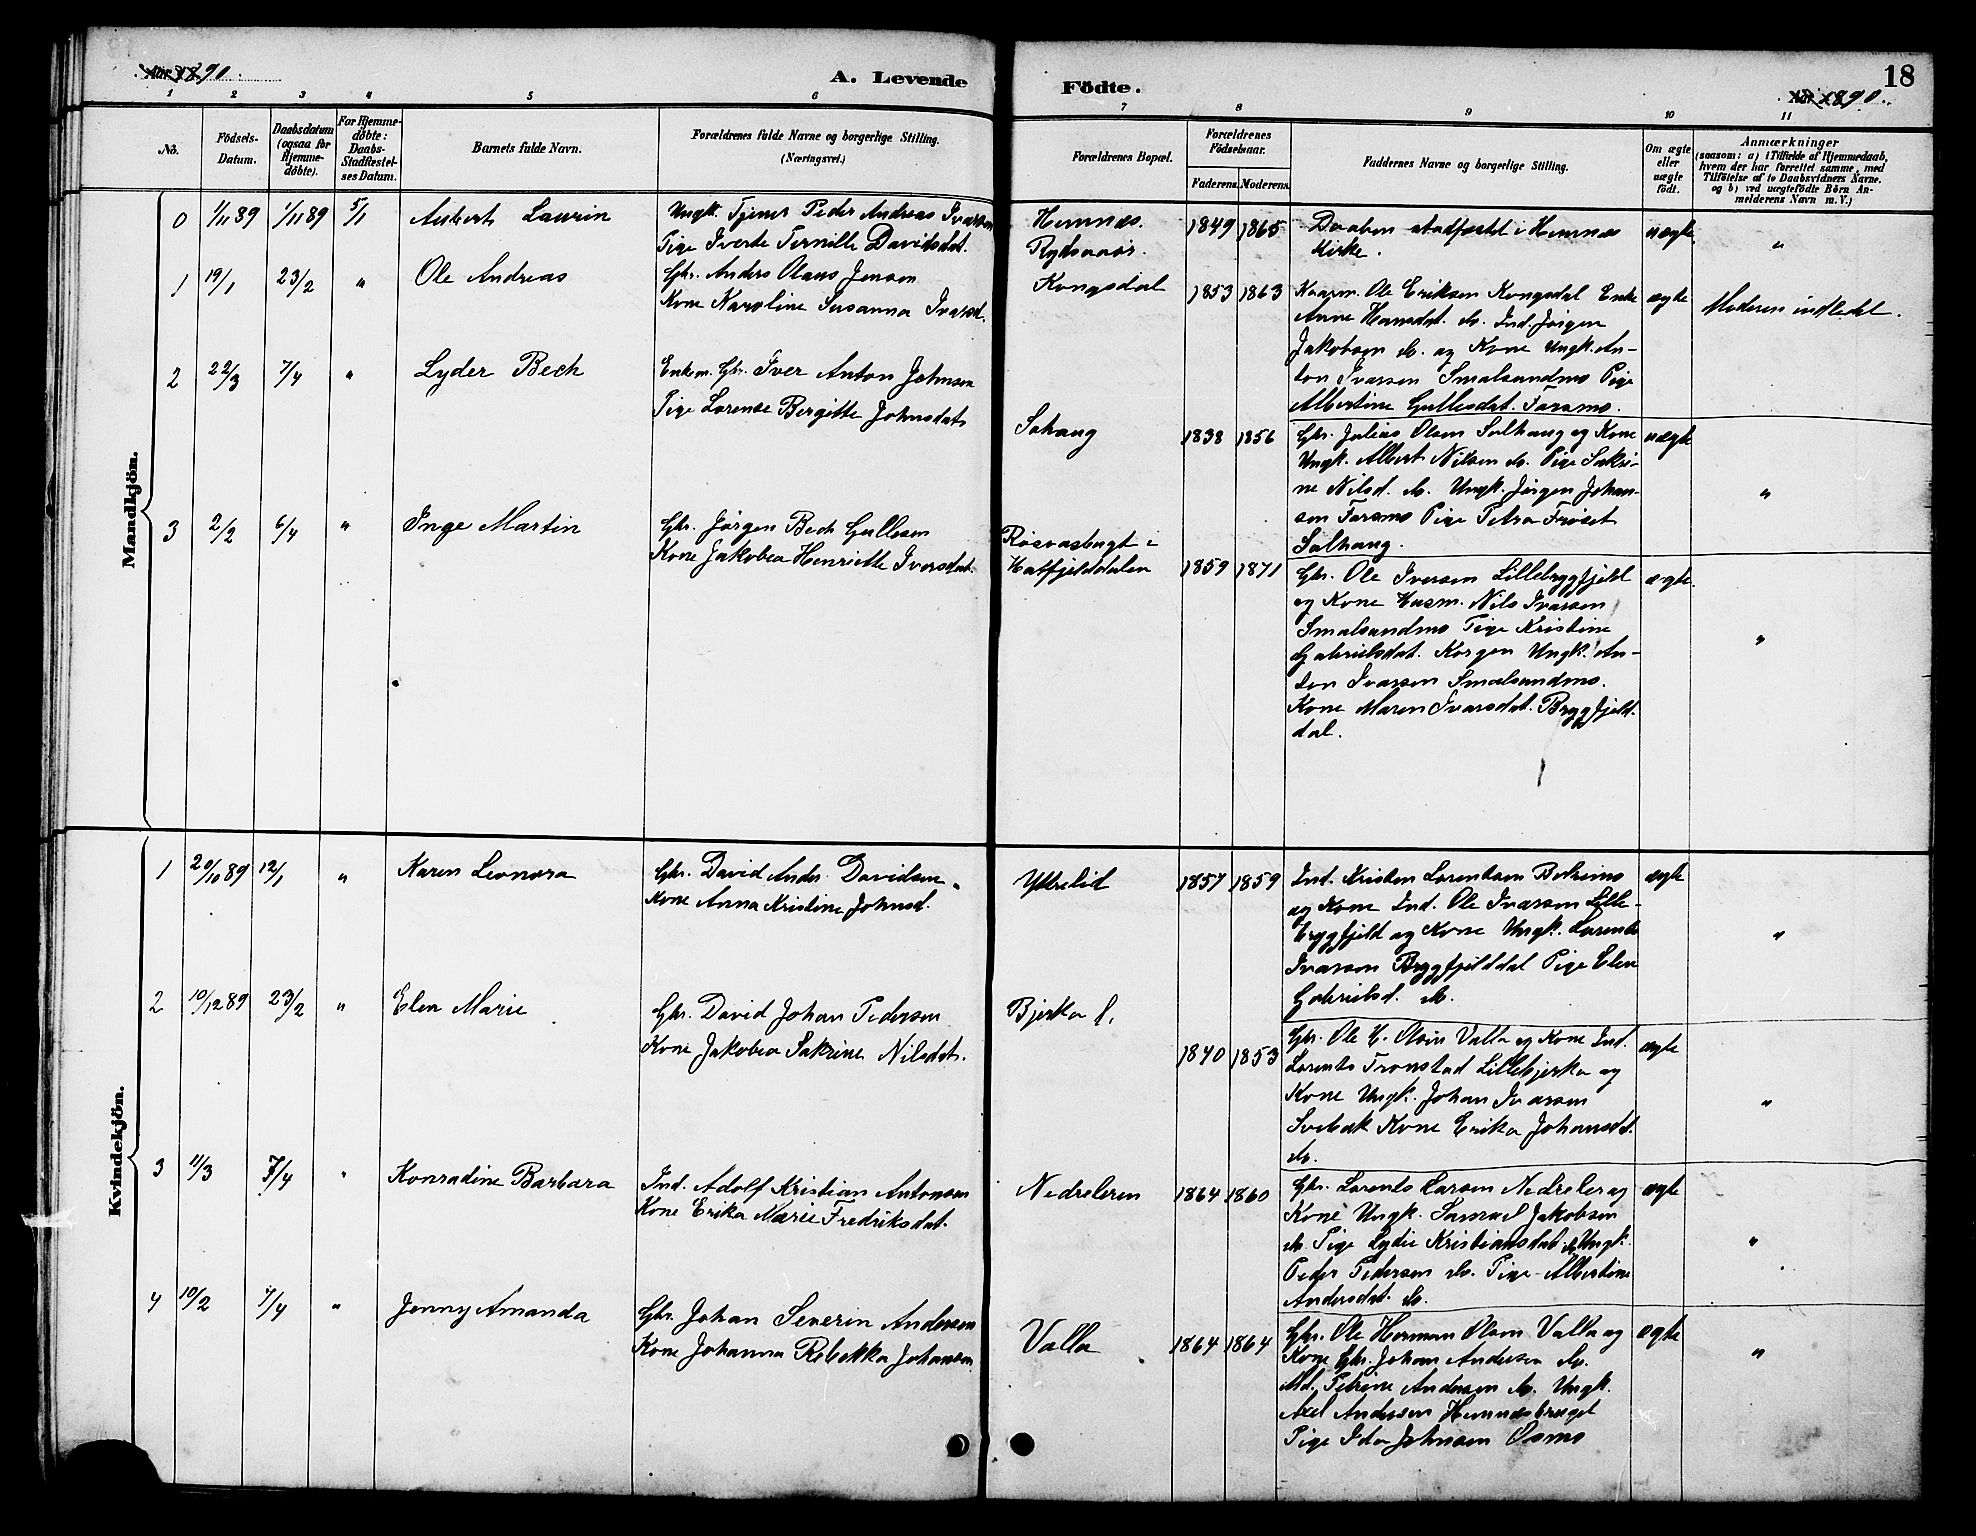 1890.
A. Levende
Födte.
18
1890.
1 2 3 4 5 6 7 8 9 10 11
No.
Födsels-
Datum.
Daabsdatum
(ogsaa for
Hjemme-
döbte).
For Hjemme-
döbte:
Daabs-
Stadfæstel-
ses Datum.
Barnets fulde Navn.
Forældrenes fulde Navne og borgerlige Stilling.
(Næringsvei.)
Forældrenes Bopæl.
Forældrenes
Födselsaar.
Faderens. Moderens.
Faddernes Navne og borgerlige Stilling.
Om ægte
eller
uægte
födt.
Anmærkninger
(saasom: a) i Tilfælde af Hjemmedaab,
hvem der har forrettet samme, med
Tilföielse af to Daabsvidners Navne.
og b) ved uægtefödte Börn An-
melderens Navn m. V.)
Mandkjön.
0 1/11 89 1/11 89 5/1 Aubert Laurin
Ungk. Tjener Peder Andreas Ivarsen
Pige Iverte Pernille Davidsdat.
Hemnæs.
1849 1865
Daaben stadfæstet i Hemnæs
Kirke.
uægte
"
1 19/1 23/2 " Ole Andreas
Gbr. Anders Olaus Jensen
Kone Karoline Susanna Ivarsd.
Kongsdal
1853 1863
Kaarm. Ole Eriksen Kongsdal Enke
Anne Hansdat. do. Ind. Jørgen
Jakobsen do. og Kone Ungk. An-
ton Ivarsen Smalsundmo Pige
Albertine Gullesdat. Farsmo.
ægte
Moderen indledet.
2 22/3 7/4 " Lyder Bech
Enkem. Gbr. Iver Anton Johnsen
Pige Lorense Bergitte Johnsdat.
Sohaug
1838 1856
Gbr. Julius Olsen Solhaug og Kone
Ungk. Albert Nilsen do. Pige Sakri-
ne Nilsd. do. Ungk. Jørgen Johan-
sen Farsmo Pige Petra Frøset
Solhaug.
uægte
"
3 2/2 6/4 " Inge Martin
Gbr. Jørgen Bech Gullesen
Kone Jakobea Henriette Iversdat.
Røsvasbugt i
Hatfjelddalen
1859 1871
Gbr. Ole Iversen Lillebryggfjeld
og Kone Husm. Nils Ivarsen
Smalsundmo Pige Kristine
Gabrielsdat. Korgen Ungk. An-
ton Ivarsen Smalsundmo.
Kone Maren Ivarsdat. Bryggfjeld-
dal.
ægte
"
Kvindekjön.
1 20/10 89 12/1 " Karen Leonora
Gbr. David Ander. Davidsen
Kone Anna Kristine Johnsd.
Ytterlid
1857 1859
Ind. Kristen Lorentsen
og Kone Ind. Ole Ivarsen Lille-
bryggfjeld og Kone Ungk. Lorents
Ivarsen Bryggfjelddal Pige Elen
Gabrielsd. do.
ægte
"
2 10/12 89 23/2 " Elen Marie
Gbr. David Johan Pedersen
Kone Jakobea Sakrine Nilsdat.
Bjerka l.
1840 1853
Gbr. Ole E. Olsen Valla og Kone Ind.
Lorents Tronstad Lillebjerka og
Kone Ungk. Johan Ivarsen
Svebak Kone Erika Johansdt.
do.
ægte
"
3 11/3 7/4 " Konradine Barbara
Ind. Adolf Kristian Antonsen
Kone Erika Marie Fredriksdat.
Nedreleren
1864 1860
Gbr. Lorents Larsen Nedreler og
Kone Ungk. Samuel Jakobsen
do. Pige Lydie Kristiansdat. do. Ungk.
Peder Pedersen do. Pige Albertine
Andersdat. do.
ægte
"
4 10/2 7/4 " Jenny Amanda
Gbr. Johan Severin Andersen
Kone Johanna Rebekka Johansen
Valla
1864 1864
Gbr. Ole Herman Olsen Valla og
Kone Gbr. Johan Andersen do.
Md. Petrine Andersen do. Ungk.
Axel Andersen Hemnæsberget
Pige Ida Johnsen Osmo
ægte
"